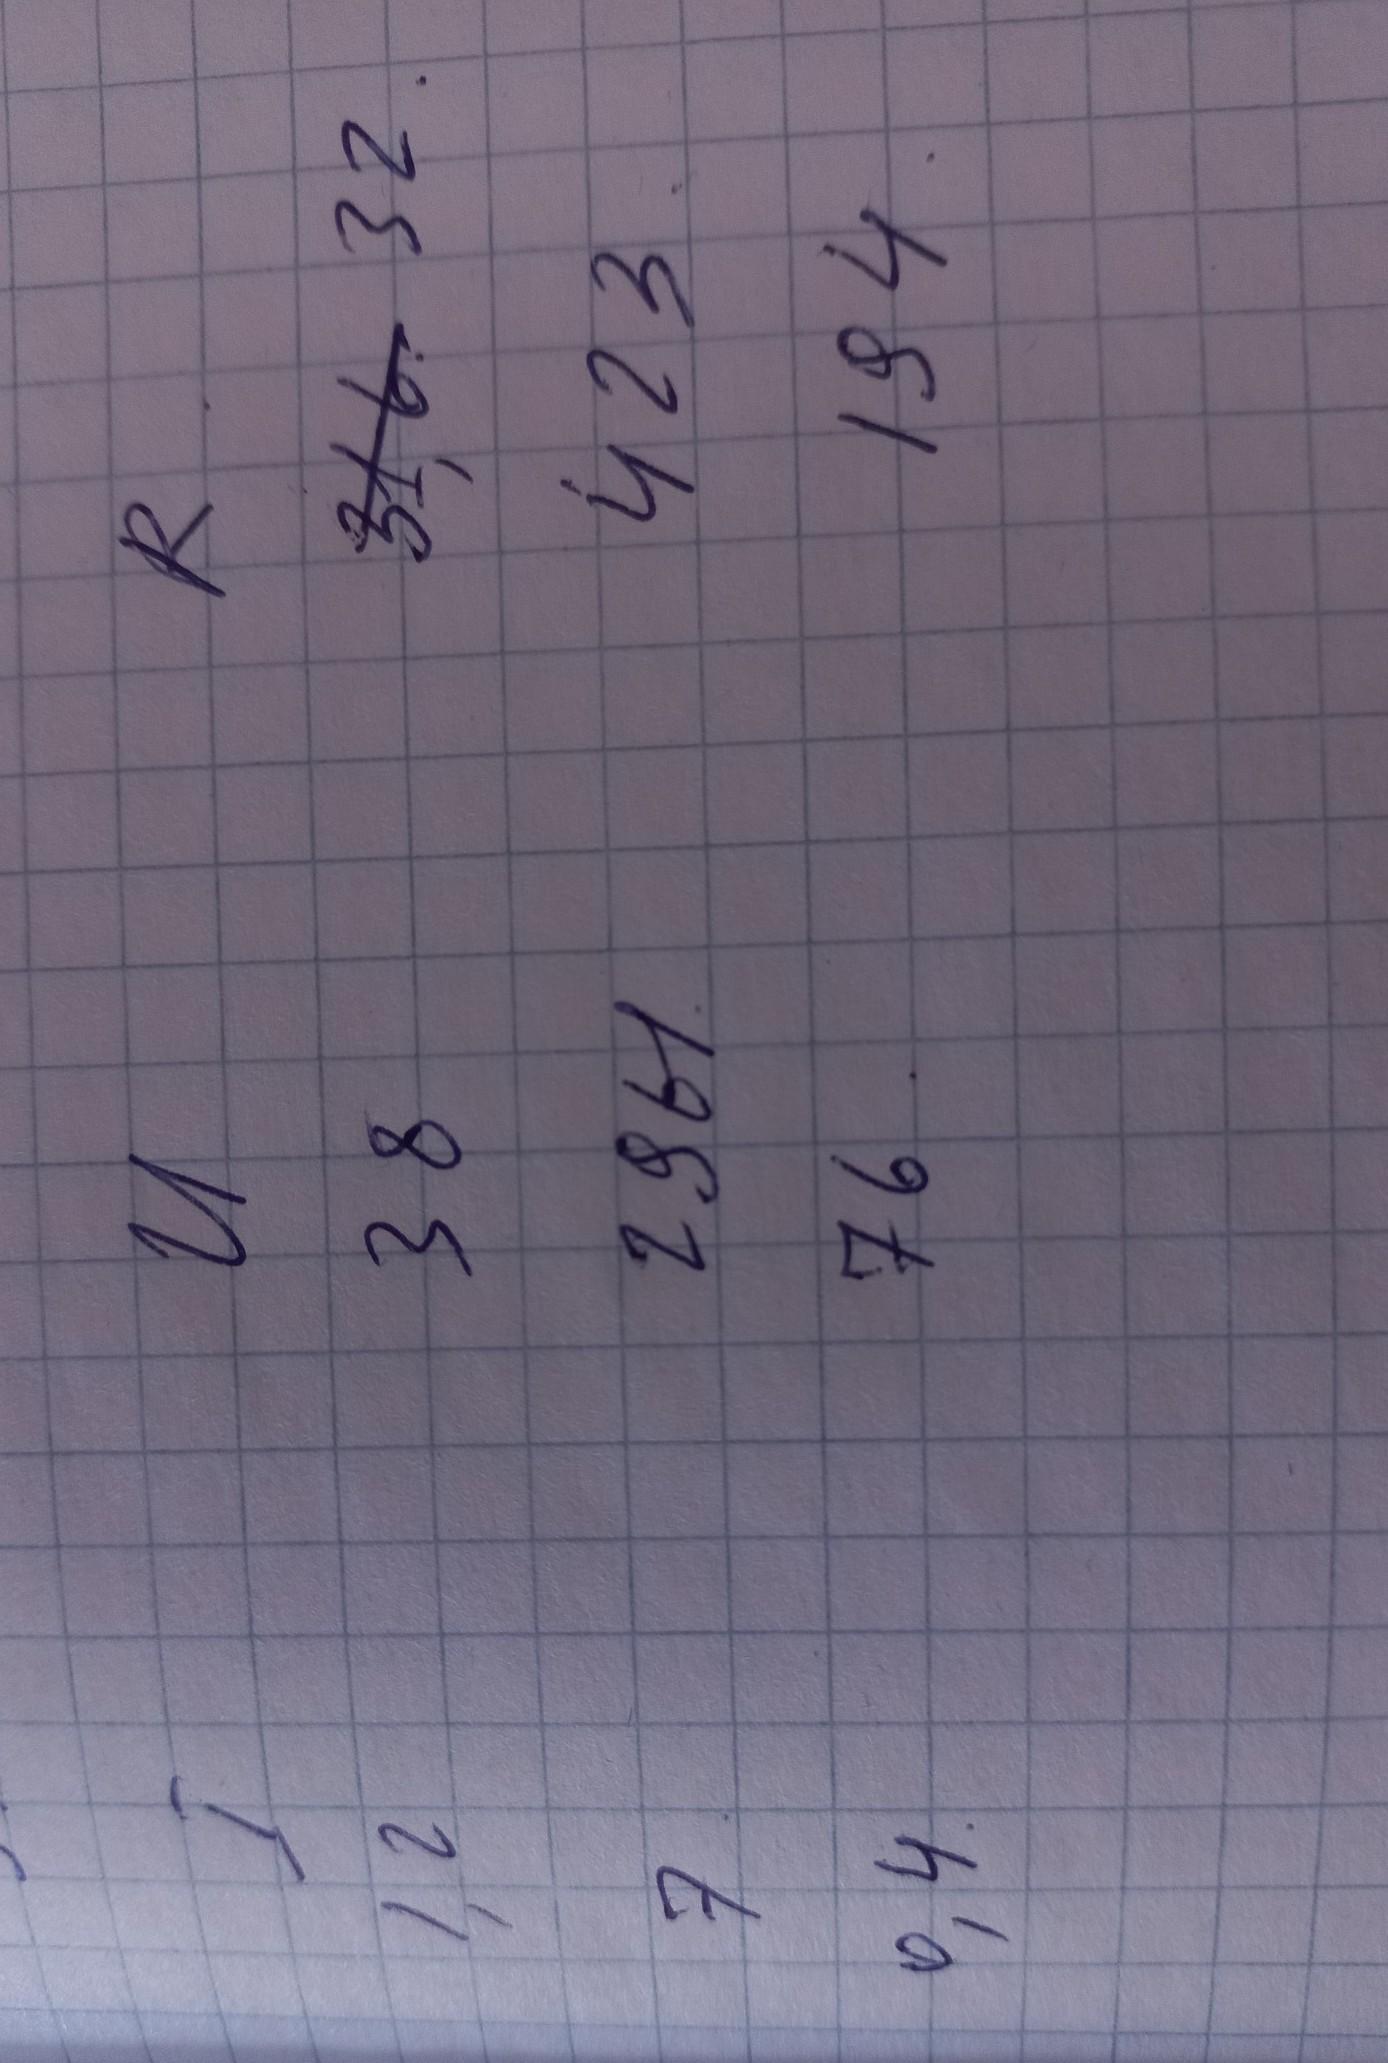 I U R
1,2 38 31,6 32
7 2961 423
0,4 76 194